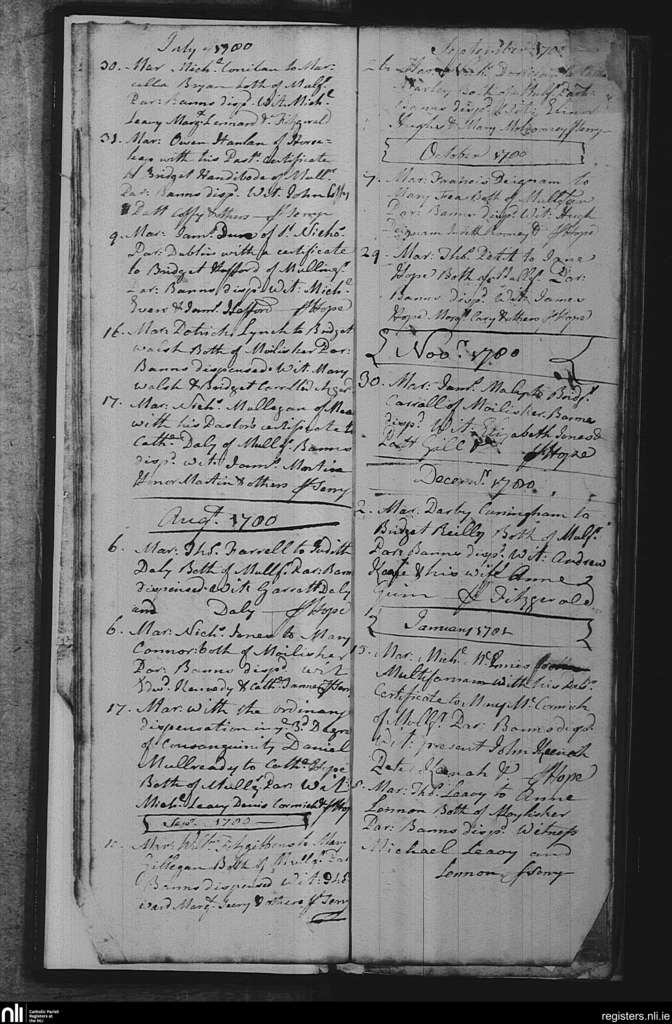 July 1780
30. Mar Mich.l Conilan to Mar-
cella Bryan both of Mullr.
Par: Banns disp.d Wit. Mich.l
Leavy Marg.t Lennard & Fitzgerald
31. Mar: Owen Hanlan of Horse-
leap with his Past.s certificate
to Bridget Handibode of Mullr.
Par: Banns disp.d Wit: John Coffy
& Patt Coffy & others
9. Mar: Jam.s Dunn of St. Nicho.s
Par: Dublin with a certificate
to Bridget Hafford of Mulling.r
Par: Banns disp.d Wit: Mich.l
Evers & Jam.s Hafford Js Hope
16. Mar: Patrick Lynch to Bridget
Walsh Both of Moilisker Par:
Banns dispensed Wit Mary
Walsh & Bridget Carroll
17. Mar: Nich.s Mullegan of
with his Pastor's certificate to
Cath.e Daly of Mullr. Banns
disp.d Wit: Jam.s Martin
Honor Martin & others
Augt. 1780
6. Mar: Th.s Farrell to Judith
Daly Both of Mullr. Par: Bann
dispensed Wit Garratt Daly
and Daly Js Hope
6. Mar: Nich.s Jones to Mary
Connor both of Moilisker
Par: Banns disp.d Wit
Edw.d Kennedy & Cath.e James
17. Mar: With the ordinary
dispensation in ye 3.d Degree
of Consanguinity Daniel
Mullready to Cath.e Hope
Both of Mullr. Par: Wit:
Mich.l Leavy Denis Cormick & Js Hope
Sep.r 1780
Mar: Wm. Fitzgibbon to Mary
Gillegan Both of Mullr. Par
Banns dispensed Wit: Th.s
Ward Marg.t Geery & others
September 1780
Hughs & Mary
October 1780
7. Mar: Francis Deignam to
Mary Fea Both of Mull
Par: Banns disp.d Wit: Hugh
& Js Hope
29. Mar: Th.s Petit to Jane
Hope Both of Mullr. Par:
Banns disp.d Wit: James
Hope Marg.t Cary & others Js Hope
Nov.r 1780
30. Mar: Jam.s Maly to Bridg.t
Carroll of Moilisker. Banns
disp.d Wit Elizabeth Jones &
Patt Gill Js Hope
Decem.r 1780
2. Mar: Darby Cuningham to
Bridget Reilly Both of Mullr.
Par: Banns disp.d Wit: Andrew
Keefe & his wife Anne
Gunn & Fitzgerald
January 1781
Mar: Mich.l
Multifarnam with his Past.s
Certificate to Mary McCormick
of Mullr. Par: Banns disp.d
Wit: present John Keenah
Peter Keenah & Js Hope
Mar: Th.s Leavy to Anne
Lennon Both of Moylisker
Par: Banns disp.d Witness
Michael Leavy and
Lennon
nli
Catholic Parish
Registers at
the NLI
registers.nli.ie